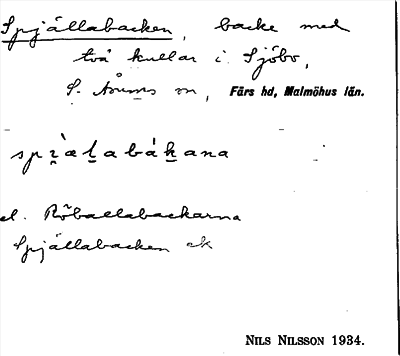 Spjällabacken, backe med
två kullar i Sjöbo,
S. Åsums sn, Färs hd, Malmöhus län.
spi̯æl̠abák̠ana
el. Röballabackarna
Spjällabacken ak
NILS NILSSON 1934.